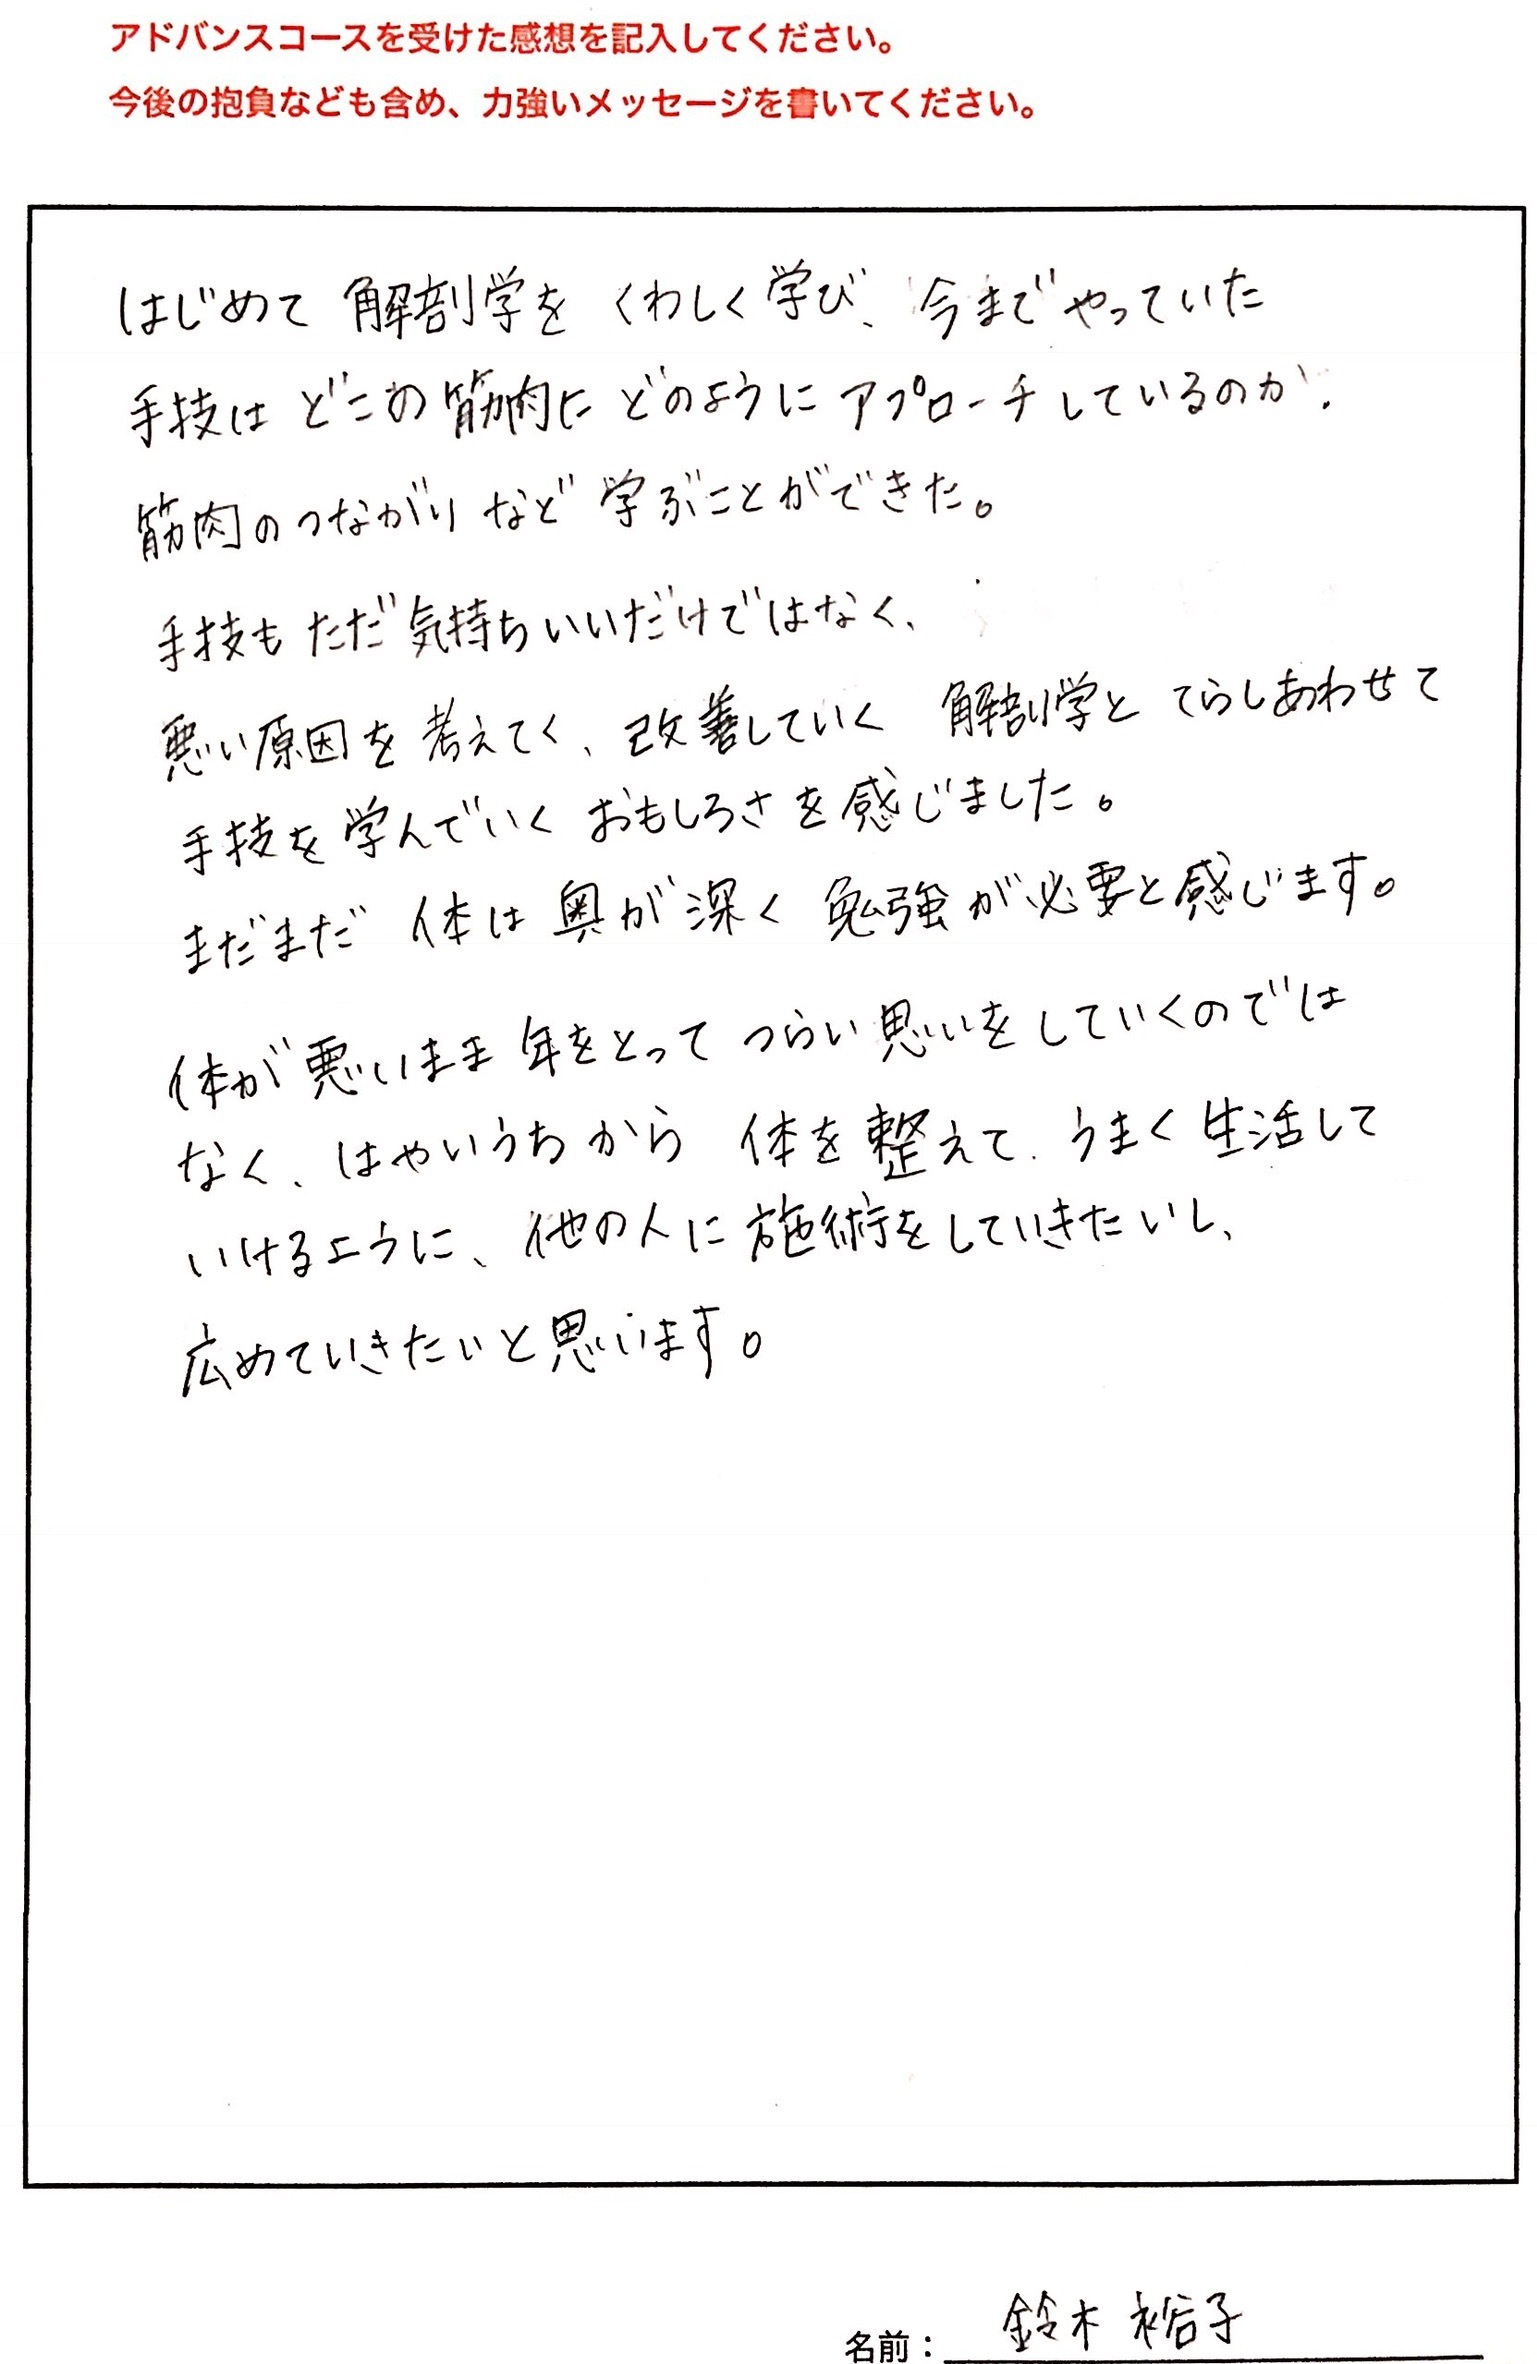 アドバンスコースを受けた感想を記入してください。
今後の抱負なども含め、力強いメッセージを書いてください。
はじめて 解剖学を くわしく学び、今までやっていた
手技は どこの筋肉に どのようにアプローチしているのか、
筋肉のつながりなど 学ぶことができた。
手技も ただ気持ちいいだけではなく、
悪い原因を考えてく、改善していく 解剖学と てらしあわせて
手技を学んでいく おもしろさを感じました。
まだまだ 体は奥が深く 勉強が必要と感じます。
体が悪いまま 年をとって つらい思いをしていくのでは
なく、はやいうちから 体を整えて、うまく生活して
いけるように、他の人に施術をしていきたいし、
広めていきたいと思います。
名前：鈴木 裕子